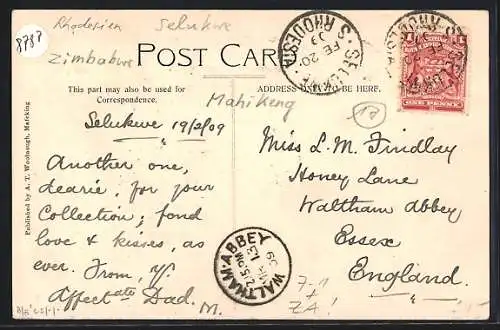 8787
Rhodesien
Selukwe
Zimbabwe
POST CARD
SELUKWE
S. RHODESIA
FE 20
09
S. RHODESIA
ONE PENNY
This part may also be used for
Correspondence.
Mahikeng
ADDRESS ONLY TO BE HERE.
Selukwe 19/2/09
Another one,
dearie, for your
Collection; fond
love & kisses, as
ever. From, yr
Affectate Dad.
M.
Miss L. M. Findlay
Honey Lane
Waltham Abbey
Essex
England.
WALTHAM-ABBEY
2.15PM
MR 13
09
Published by A. T. Woobaugh, Mafeking